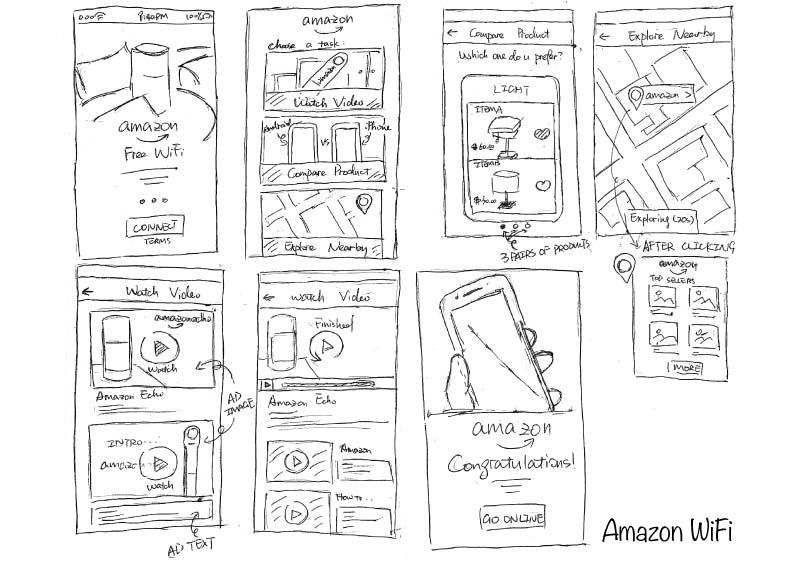 8:40PM 100%
amazon
Free WiFi
CONNECT
TERMS
amazon
choose a task:
amazon
Watch Video
Android
VS
iPhone
Compare Product
Explore Nearby
← Compare Product
Which one do u prefer?
LIGHT
ITEM A
ITEM B
3 PAIRS OF PRODUCTS
← Explore Nearby
amazon >
Exploring (20s)
AFTER CLICKING
amazon
TOP SELLERS
MORE
← Watch Video
amazonecho
Watch
Amazon Echo
AD IMAGE
INTRO...
amazon
Watch
AD TEXT
← Watch Video
Finished
Amazon Echo
Amazon
How to..
amazon
Congratulations!
GO ONLINE
Amazon WiFi